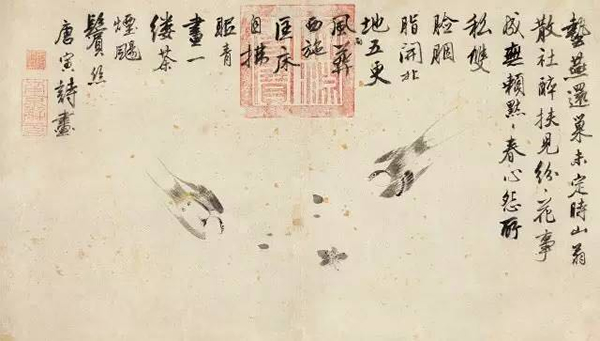 藝燕還巢未定時山翁
散社醉扶兒紛〻花事
成無賴默〻春心怨所
私雙
臉胭
脂開北
地五更
風葬
西施
匡床
自拂
眠青
晝一
縷茶
煙颺
鬢絲
唐寅詩畫